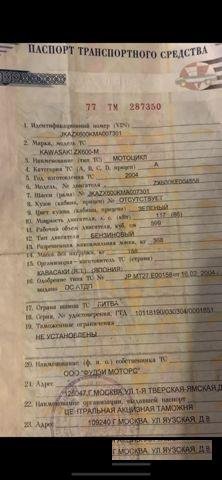 ПАСПОРТ ТРАНСПОРТНОГО СРЕДСТВА
77 ТМ 287350
1. Идентификационный номер (VIN) JKAZX600KMA007301
2. Марка, модель ТС KAWASAKI ZX600-M
3. Наименование (тип ТС) МОТОЦИКЛ
4. Категория ТС (A, B, C, D, прицеп) A
5. Год изготовления ТС 2004
6. Модель, № двигателя ZX600KE
7. Шасси (рама) № JKAZX600KMA007301
8. Кузов (кабина, прицеп) № ОТСУТСТВУЕТ
9. Цвет кузова (кабины, прицепа) ЗЕЛЕНЫЙ
10. Мощность двигателя, л. с. (кВт) 117 (86)
11. Рабочий объем двигателя, куб. см 599
12. Тип двигателя БЕНЗИНОВЫЙ
13. Разрешенная максимальная масса, кг 368
14. Масса без нагрузки, кг
15. Организация-изготовитель ТС (страна)
КАВАСАКИ (ЯПОНИЯ)
16. Одобрение типа ТС № JP MT27.E00158 от 16.02.2004 г.
выдано ОС АТДП
17. Страна вывоза ТС ЛИТВА
18. Серия, № ГТД 10118190/030304/0001851
19. Таможенные ограничения
НЕ УСТАНОВЛЕНЫ
20. Наименование (ф. и. о.) собственника ТС
ООО МОТОРС"
21. Адрес
125047, Г МОСКВА, УЛ.1-Я ТВЕРСКАЯ-ЯМСКАЯ, Д
22. Наименование организации, выдавшей паспорт
ЦЕНТРАЛЬНАЯ АКЦИЗНАЯ ТАМОЖНЯ
23. Адрес 109240 Г МОСКВА, УЛ ЯУЗСКАЯ, Д 8